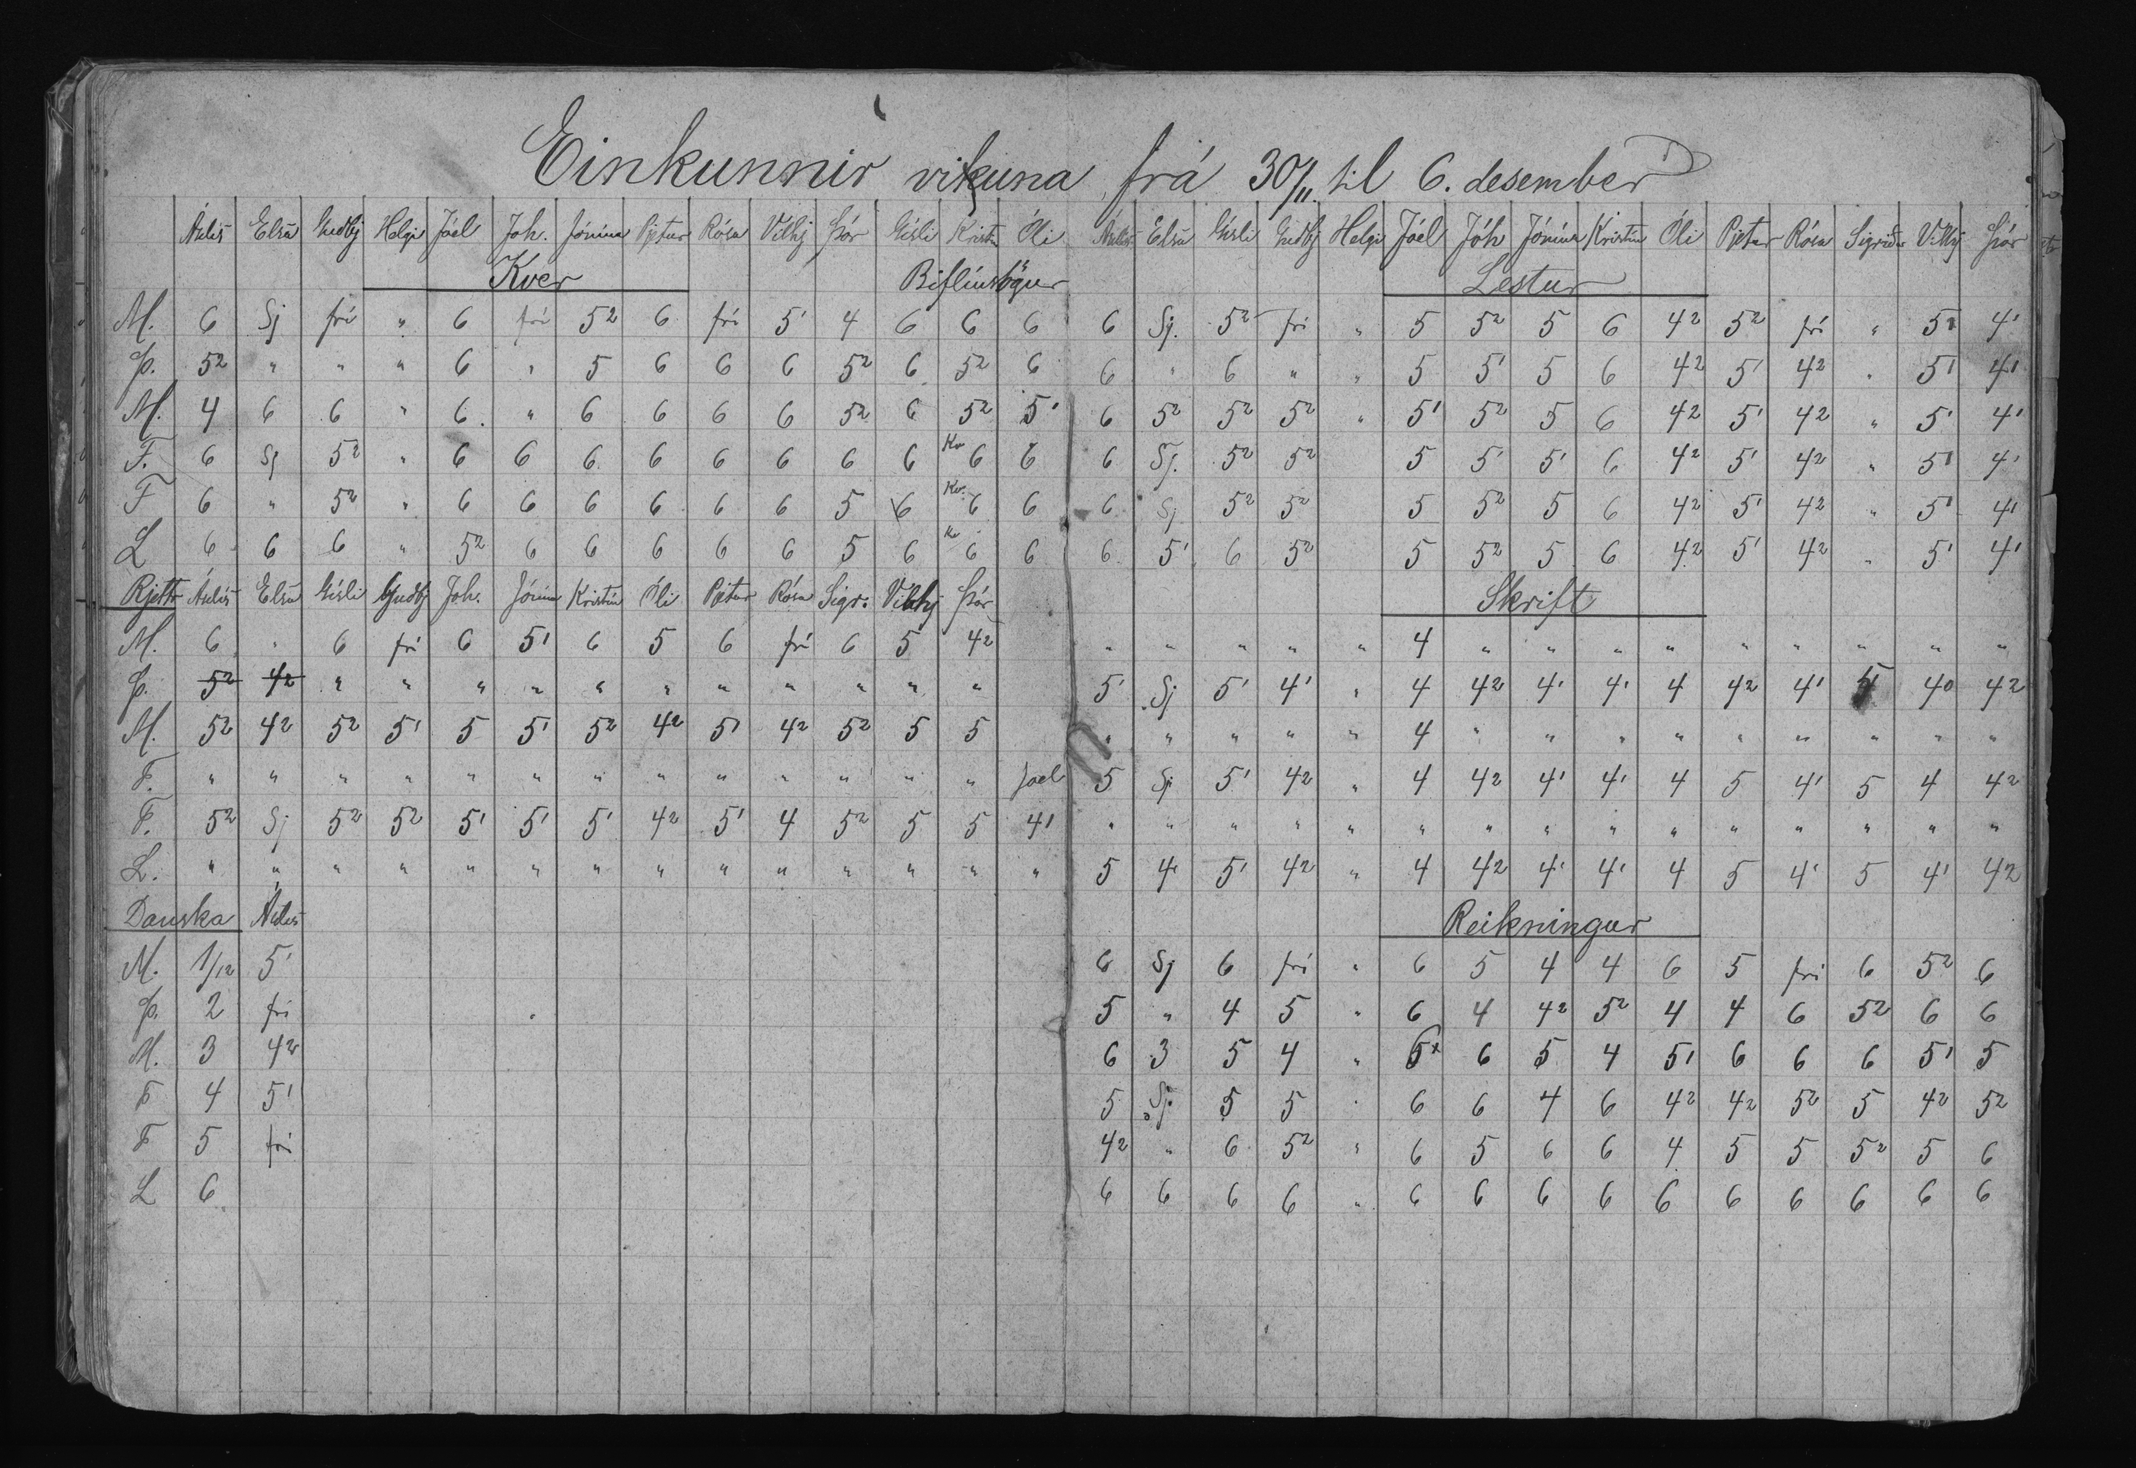 Einkunnir vikuna frá 30/11 til 6. desember
Elsa Gudbj Helgi Jóel Joh. Jónína Pjetur Rósa Vilhj Þór Gísli Kristín Óli Elsa Gísli Gudbj Helgi Jóel Jóh Jónína Kristín Óli Pjetur Rósa Sigríður Vilhj Þór
Kver Biflíusögur Lestur
M. 6 Sj frí " 6 frí 5² 6 frí 5¹ 4 6 6 6 6 Sj. 5² frí " 5 5² 5 6 4² 5² frí " 5² 4¹
Þ. 5² " " " 6 " 5 6 6 6 5² 6 5² 6 6 " 6 " " 5 5¹ 5 6 4² 5¹ 4² " 5¹ 4¹
M. 4 6 6 " 6 " 6 6 6 6 5² 6 5² 5¹ 6 5² 5² 5² " 5¹ 5² 5 6 4² 5¹ 4² " 5¹ 4¹
F. 6 Sj 5² " 6 6 6 6 6 6 6 6 Kv 6 6 6 Sj. 5² 5² 5 5¹ 5¹ 6 4² 5¹ 4² " 5¹ 4¹
F 6 " 5² " 6 6 6 6 6 6 5 6 Kv. 6 6 6 Sj 5² 5² 5 5² 5 6 4² 5¹ 4² " 5¹ 4¹
L 6 6 6 " 5² 6 6 6 6 6 5 6 Kv 6 6 6 5¹ 6 5² 5 5² 5 6 4² 5¹ 4² " 5¹ 4¹
Rjettr Elsa Gísli Gudbj Joh. Jónína Kristín Óli Pjetur Rósa Sigr. Vilhj Þór Skrift
M. 6 " 6 frí 6 5¹ 6 5 6 frí 6 5 4² " " " " " 4 " " " " " " " " "
Þ. 5² 4² " " " " " " " " " " " 5¹ Sj 5¹ 4¹ " 4 4² 4¹ 4¹ 4 4² 4¹ 4⁰ 4²
M. 5² 4² 5² 5¹ 5 5¹ 5² 4² 5¹ 4² 5² 5 5 " " " " " 4 " " " " " " " " "
F. " " " " " " " " " " " " " Joel 5 Sj 5¹ 4² " 4 4² 4¹ 4¹ 4 5 4¹ 5 4 4²
F. 5² Sj 5² 5² 5¹ 5¹ 5¹ 4² 5¹ 4 5² 5 5 4¹ " " " " " " " " " " " " " " "
L. " " " " " " " " " " " " " " 5 4¹ 5¹ 4² " 4 4² 4¹ 4¹ 4 5 4¹ 5 4¹ 4²
Danska Reikningur
M. 1/12 5¹ 6 Sj 6 frí " 6 5 4 4 6 5 frí 6 5² 6
Þ. 2 frí 5 " 4 5 " 6 4 4² 5² 4 4 6 5² 6 6
M. 3 4² 6 3 5 4 " 6 5 4 5¹ 6 6 6 5¹ 5
F 4 5¹ 5 Sj. 5 5 " 6 6 4 6 4² 4² 5² 5 4² 5²
F 5 frí 4² " 6 5² " 6 5 6 6 4 5 5 5² 5 6
L 6 6 6 6 6 " 6 6 6 6 6 6 6 6 6 6